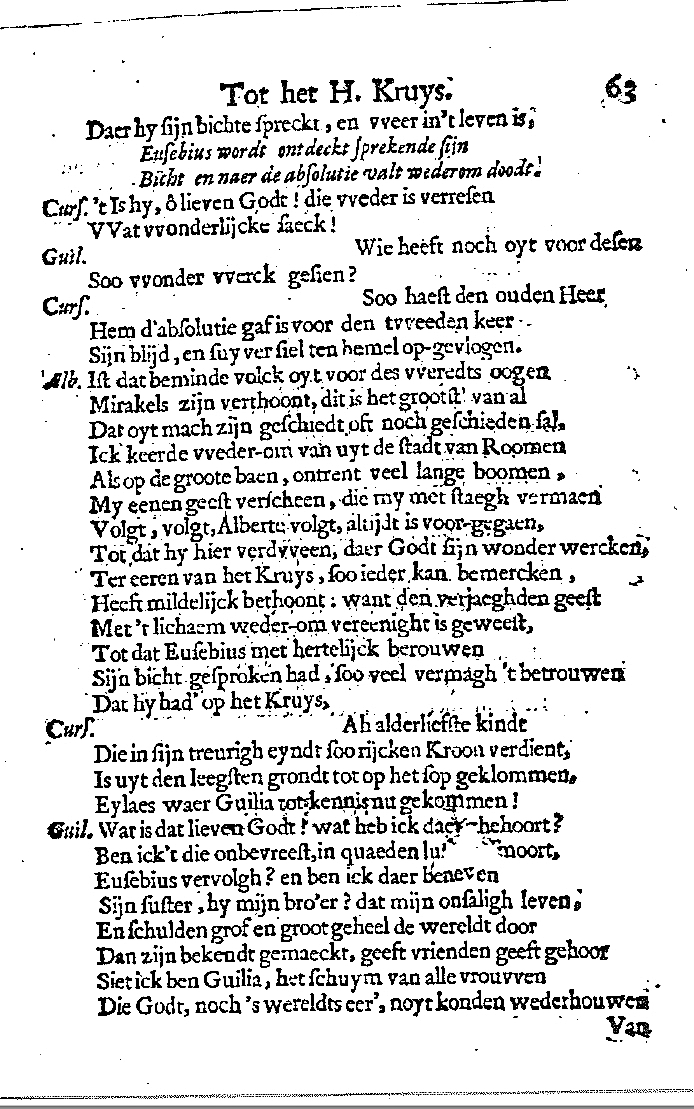 Tot het H. Kruys. 63
Daer hy ſijn bichte ſpreckt, en vveer in't leven is,
Euſebius wordt ontdeckt ſprekende ſijn
Bicht en naer de abſolutie valt wederom doodt.
Curſ. 't Is hy, ô lieven Godt! die vveder is verreſen
VVat vvonderlijcke ſaeck!
Guil. Wie heeft noch oyt voor deſen
Soo vvonder vverck geſien?
Curſ. Soo haeſt den ouden Heer
Hem d'abſolutie gaf is voor den tvveeden keer
Sijn blijd, en ſuyver ſiel ten hemel op-gevlogen.
Alb. Iſt dat beminde volck oyt voor des vveredts oogen
Mirakels zijn verthoont, dit is het grootſt' van al
Dat oyt mach zijn geſchiedt oft noch geſchieden ſal,
Ick keerde vveder-om van uyt de ſtadt van Roomen
Als op de groote baen, ontrent veel lange boomen,
My eenen geeſt verſcheen, die my met ſtaegh vermaen
Volgt, volgt, Alberte volgt, altijdt is voor-gegaen,
Tot dat hy hier verdvveen, daer Godt ſijn wonder wercken,
Ter eeren van het Kruys, ſoo ieder kan bemercken,
Heeft mildelijck bethoont: want den verjaeghden geeſt
Met 't lichaem weder-om vereenight is geweeſt,
Tot dat Euſebius met hertelijck berouwen
Sijn bicht geſproken had, ſoo veel vermagh 't betrouwen
Dat hy had' op het Kruys,
Curſ. Ah alderliefſte kindt
Die in ſijn treurigh eyndt ſoo rijcken Kroon verdient,
Is uyt den leegſten grondt tot op het ſop geklommen,
Eylaes waer Guilia tot kennis nu gekommen!
Guil. Wat is dat lieven Godt! wat heb ick daer gehoort?
Ben ick't die onbevreeſt, in quaeden moort,
Euſebius vervolgh? en ben ick daer beneven
Sijn ſuſter, hy mijn bro'er? dat mijn onſaligh leven,
En ſchulden grof en groot geheel de wereldt door
Dan zijn bekendt gemaeckt, geeft vrienden geeft gehoor
Siet ick ben Guilia, het ſchuym van alle vrouvven
Die Godt, noch 's wereldts eer', noyt konden wederhouwen
Van